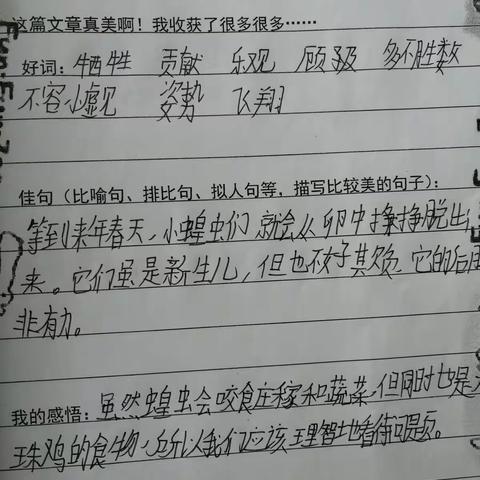 这篇文章真美啊！我收获了很多很多……
好词：牺牲 贡献 乐观 顾及 多不胜数
不容小觑 姿势 飞翔
佳句（比喻句、排比句、拟人句等，描写比较美的句子）：
等到来年春天，小蝗虫们就会从卵中挣脱出
来。它们虽是新生儿，但也不好欺负，它的后
非有力。
我的感悟：虽然蝗虫会咬食庄稼和蔬菜，但同时也是
珠鸡的食物，所以我们应该理智地看待问题。